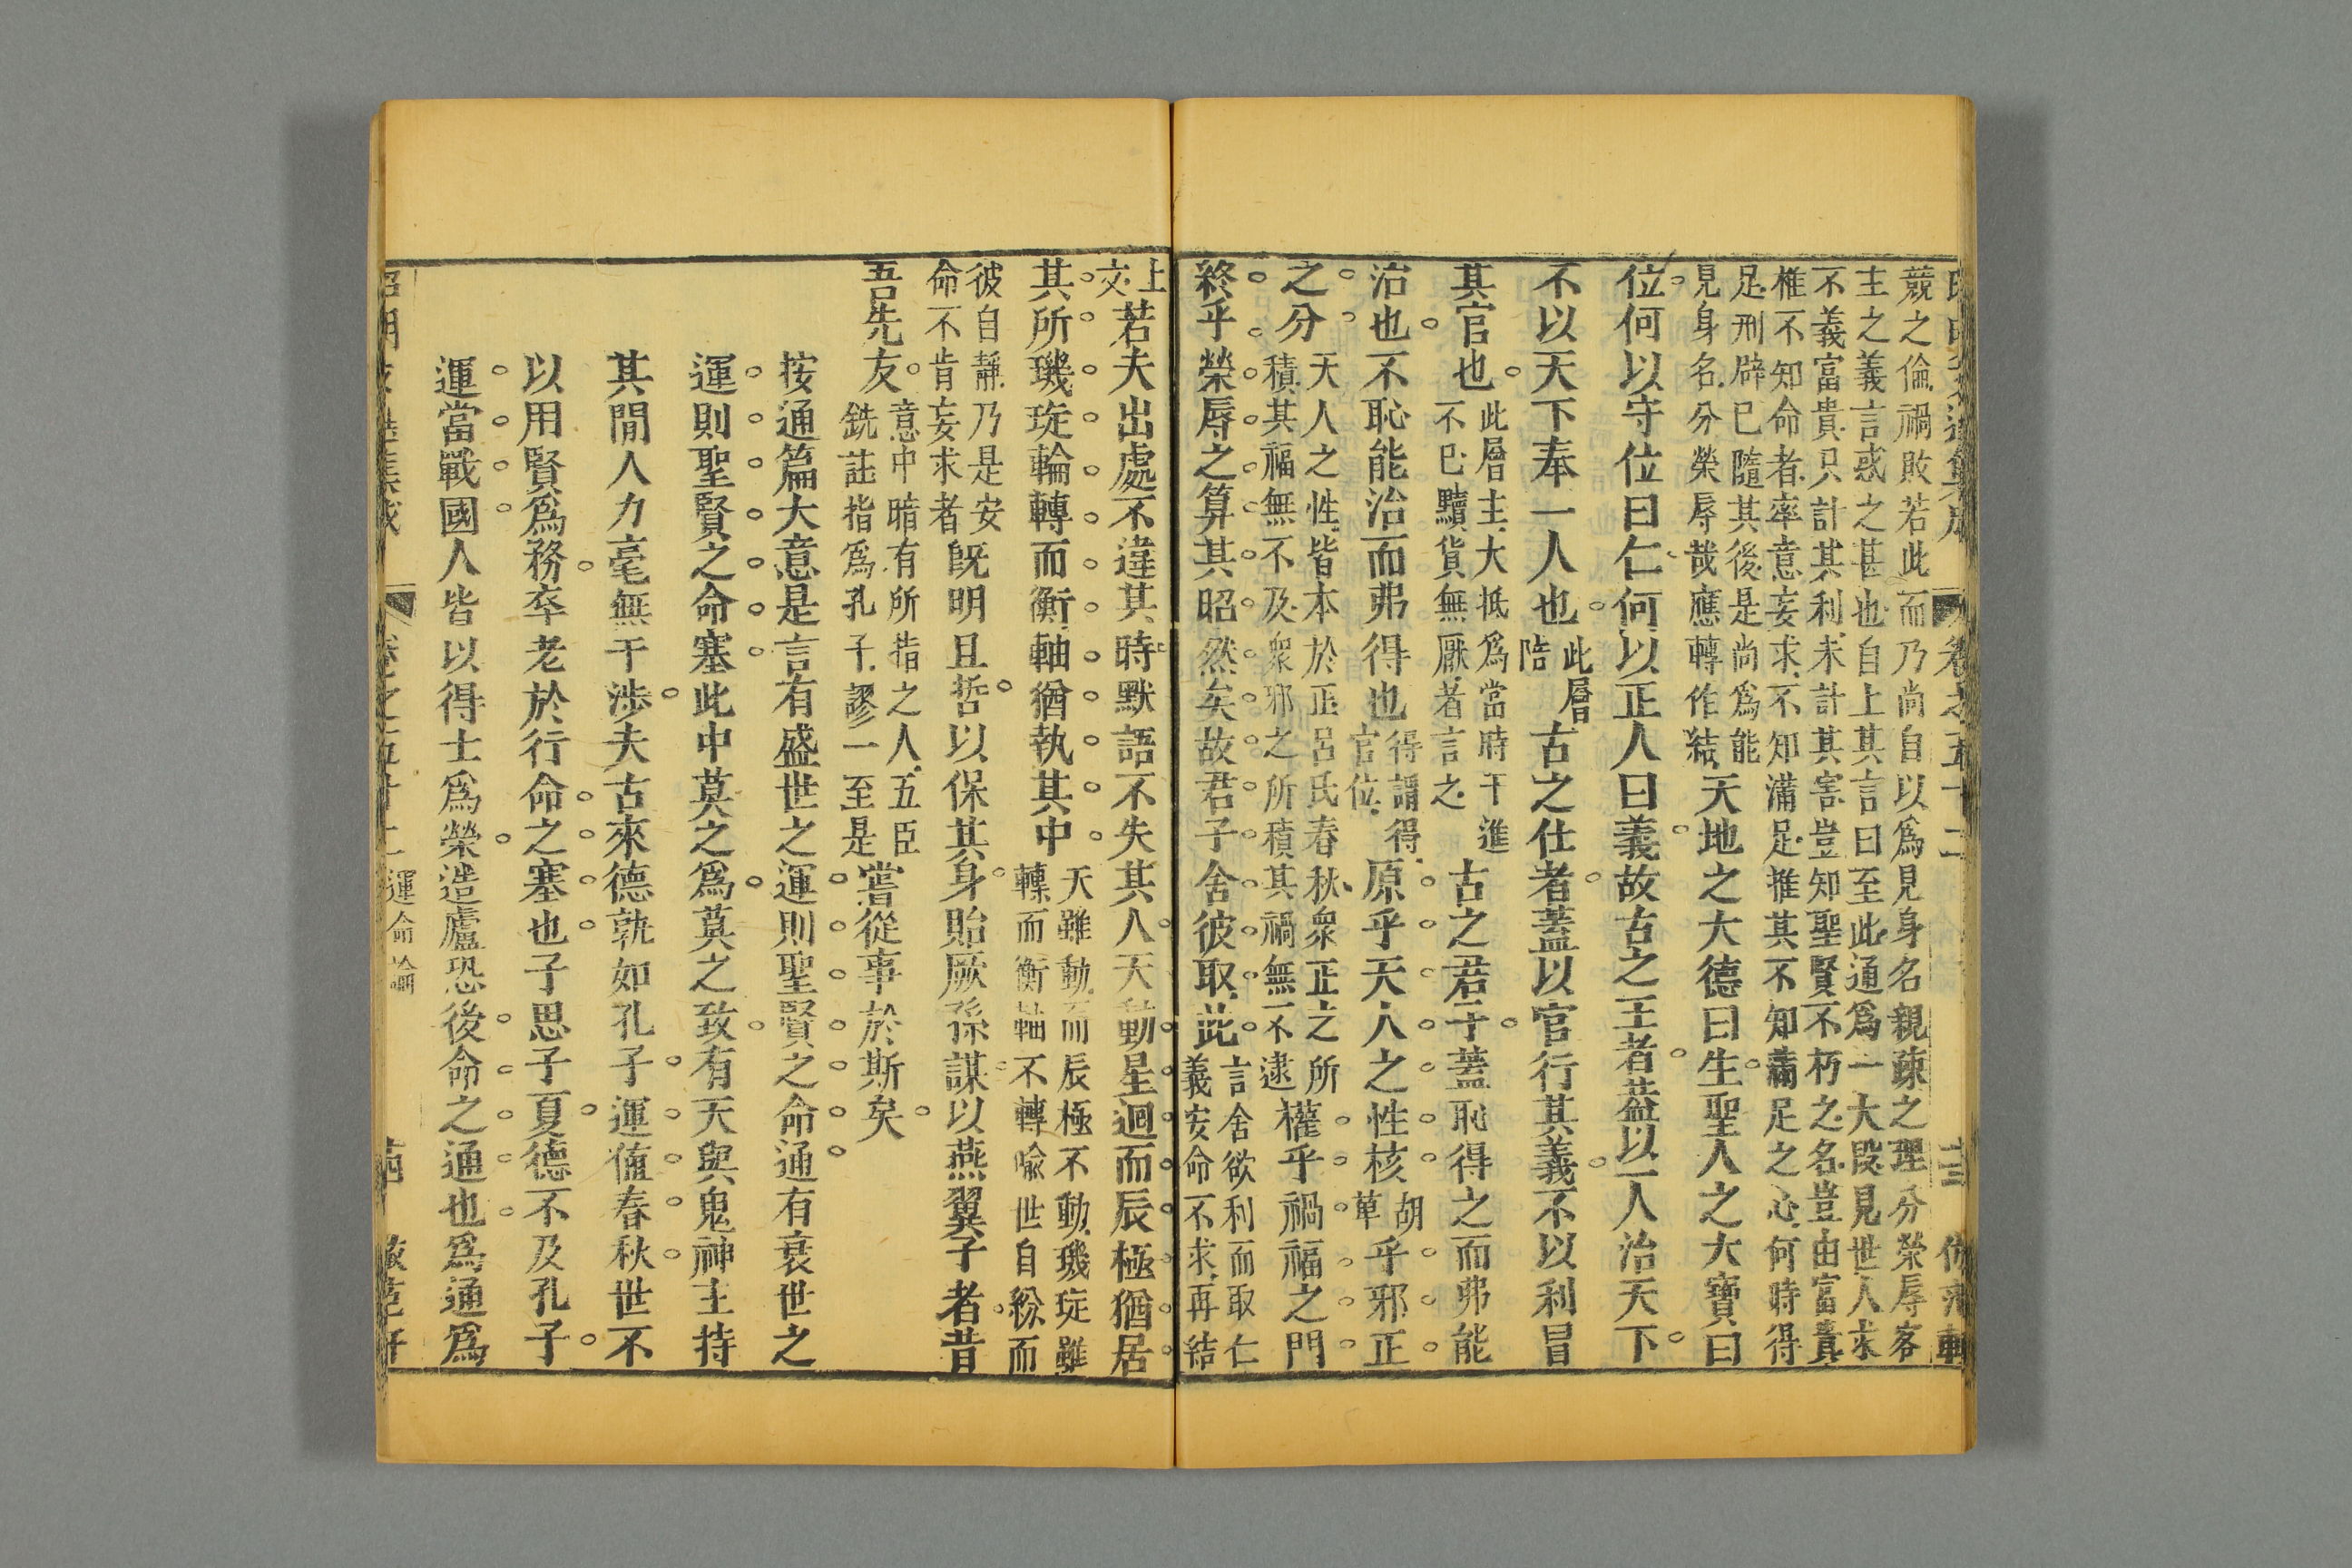 競之倫禍敗若此而乃尚自以為見身名親疎之理分榮辱客
主之義言惑之甚也自上其言曰至此通為一大段見世人求
不義富貴只計其利未計其害豈知聖賢不朽之名豈由富貴
惟不知命者率意妄求不知滿足推其不知滿足之心何時得
足刑辟已隨其後是尚為能
見身名分榮辱哉應轉作結
天地之大德曰生聖人之大寶曰
位何以守位曰仁何以正人曰義故古之王者葢以一人治天下
不以天下奉一人也
此層
陪
古之仕者蓋以官行其義不以利冒
其官也
此層主大抵為當時干進
不已黷貨無厭者言之
古之君子蓋恥得之而弗能
治也不恥能治而弗得也
得謂得
官位
原乎天人之性核
胡
草
乎邪正
之分
天人之性皆本於正呂氏春秋衆正之所
積其福無不及衆邪之所積其禍無不逮
權乎禍福之門
終乎榮辱之算其昭然矣故君子舍彼取此
言舍欲利而取仁
義安命不求再結
上
文
若夫出處不違其時默語不失其人天動星迴而辰極猶居
其所璣琁輪轉而衡軸猶執其中
天雖動而辰極不動璣琁雖
轉而衡軸不轉喻世自紛而
彼自靜乃是安
命不肯妄求者
旣明且哲以保其身貽厥孫謀以燕翼子者昔
吾先友
意中暗有所指之人五臣
銑註指為孔子謬一至是
嘗從事於斯矣
按通篇大意是言有盛世之運則聖賢之命通有衰世之
運則聖賢之命塞此中莫之爲莫之致有天與鬼神主持
其閒人力毫無干涉夫古來德孰如孔子運値春秋世不
以用賢爲務卒老於行命之塞也子思子夏德不及孔子
運當戰國人皆以得士爲榮造廬恐後命之通也爲通爲
運命論